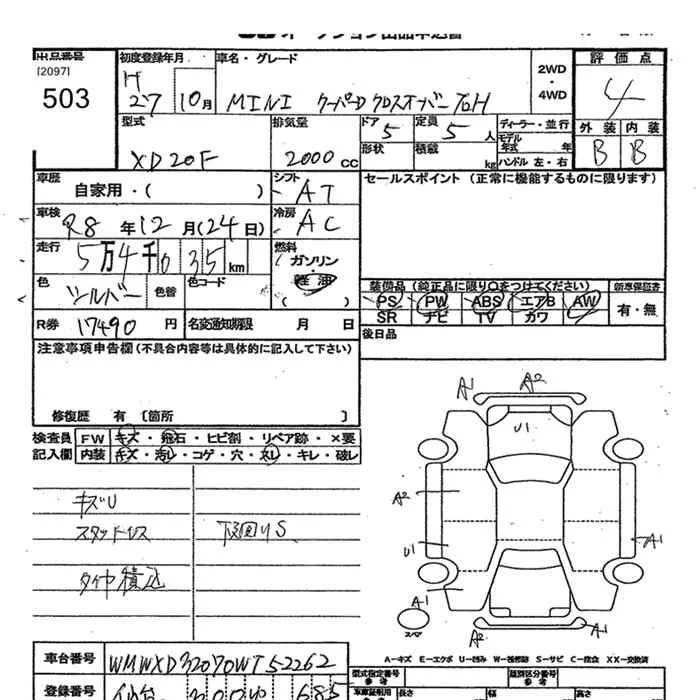 出品番号
[2097]
503
初度登録年月
H
27 10月
車名・グレード
MINI クーパーD クロスオーバー 70H
2WD
・
4WD
評価点
4
外装 内装
B B
型式
XD20F
排気量
2000 cc
ドア
5
定員
5 人
ディーラー・並行
モデル
年式 年
形状
積載
kg
ハンドル 左・右
車歴
自家用・( )
シフト
AT
セールスポイント (正常に機能するものに限ります)
車検
R8 年 12 月 (24日)
冷房
AC
走行
5万4千035km
燃料
ガソリン
・
軽油
( )
色
シルバー
色替
色コード
装備品 (純正品に限り○をつけてください)
PS PW ABS エアB AW
SR ナビ TV カワ
新車保証書
有・無
R券 17490 円
名変通知期限 月 日
後日品
注意事項申告欄 (不具合内容等は具体的に記入して下さい)
修復歴 有 〔箇所 〕
検査員
記入欄
FW キズ・飛石・ヒビ割・リペア跡・×要
内装 キズ・汚レ・コゲ・穴・スレ・キレ・破レ
キズU
スタッドレス
下廻りS
タイヤ積込
A1 A2
U1
A2
U1
A1
A1
スペア
A2 A1
A-キズ E-エクボ U-凹み W-補修跡 S-サビ C-腐食 XX-交換済
車台番号 WMWXD32070WT52262
型式指定番号
参考
類別区分番号
参考
登録番号 仙台
車庫証明用
参考
長さ
幅
高さ